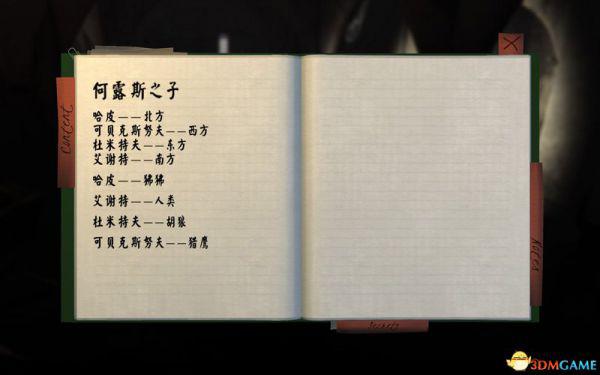 何露斯之子
哈皮——北方
可贝克斯努夫——西方
杜米特夫——东方
艾谢特——南方
哈皮——狒狒
艾谢特——人类
杜米特夫——胡狼
可贝克斯努夫——猎鹰
Content
Notes
Secrets
X
3DMGAME